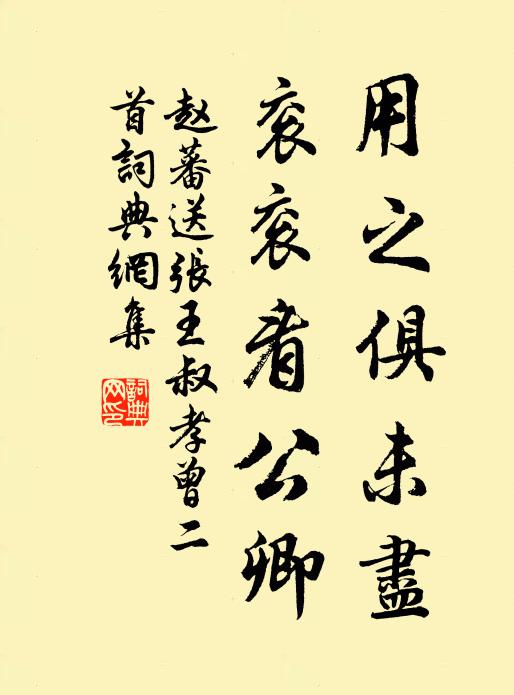 用之俱未盡
衮衮看公卿
赵蕃送張王叔孝曾二
首詞典網集
詞典網印